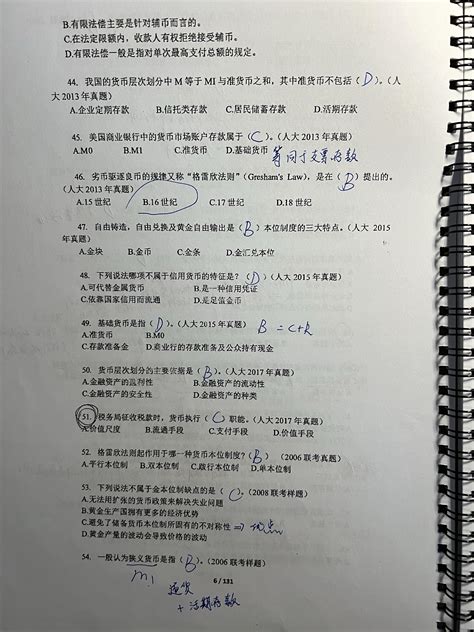 B.有限法偿主要是针对辅币而言的。
C.在法定限额内，收款人有权拒绝接受辅币。
D.有限法偿一般是指对单次最高支付总额的规定。
44. 我国的货币层次划分中 M 等于 MI 与准货币之和，其中准货币不包括（ D ）。（人
大 2013 年真题）
A.企业定期存款 B.信托类存款 C.居民储蓄存款 D.活期存款
45. 美国商业银行中的货币市场账户存款属于（ C ）。（人大 2013 年真题）
A.M0 B.M1 C.准货币 D.基础货币 等同于支票存款
46. 劣币驱逐良币的规律又称“格雷欣法则”（Gresham's Law），是在（ B ）提出的。
（人大 2013 年真题）
A.15 世纪 B.16 世纪 C.17 世纪 D.18 世纪
47. 自由铸造，自由兑换及黄金自由输出是（ B ）本位制度的三大特点。（人大 2015
年真题）
A.金块 B.金币 C.金条 D.金汇兑本位
48. 下列说法哪项不属于信用货币的特征是？（ D ）（人大 2015 年真题）
A.可代替金属货币 B.是一种信用凭证
C.依靠国家信用而流通 D.是足值金币
49. 基础货币是指（ D ）。（人大 2015 年真题） B = C+R
A.准货币 B.M0
C.存款准备金 D.商业行的存款准备及公众持有现金
50. 货币层次划分的主要依据是（ B ）。（人大 2017 年真题）
A.金融资产的盈利性 B.金融资产的流动性
C.金融资产的安全性 D.金融资产的种类
51. 税务局征收税款时，货币执行（ C ）职能。（人大 2017 年真题）
A.价值尺度 B.流通手段 C.支付手段 D.价值手段
52. 格雷欣法则起作用于哪一种货币本位制度？（ B ）（2006 联考真题）
A.平行本位制 B.双本位制 C.跛行本位制 D.单本位制
53. 下列说法不属于金本位制缺点的是（ C ）。（2008 联考样题）
A.无法用扩张的货币政策来解决失业问题
B.黄金生产国拥有更多的经济优势
C.避免了储备货币本位制所固有的不对称性 ⇒ 优点
D.黄金产量的波动会导致价格的波动
54. 一般认为狭义货币是指（ B ）。（2006 联考样题）
M1
6 / 131
通货
+ 活期存款